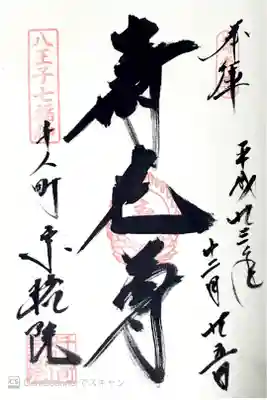 奉拝
平成廿三年
十二月廿五日
寿老尊
八王子七福神
千人町宗格院
CS CamScannerでスキャン